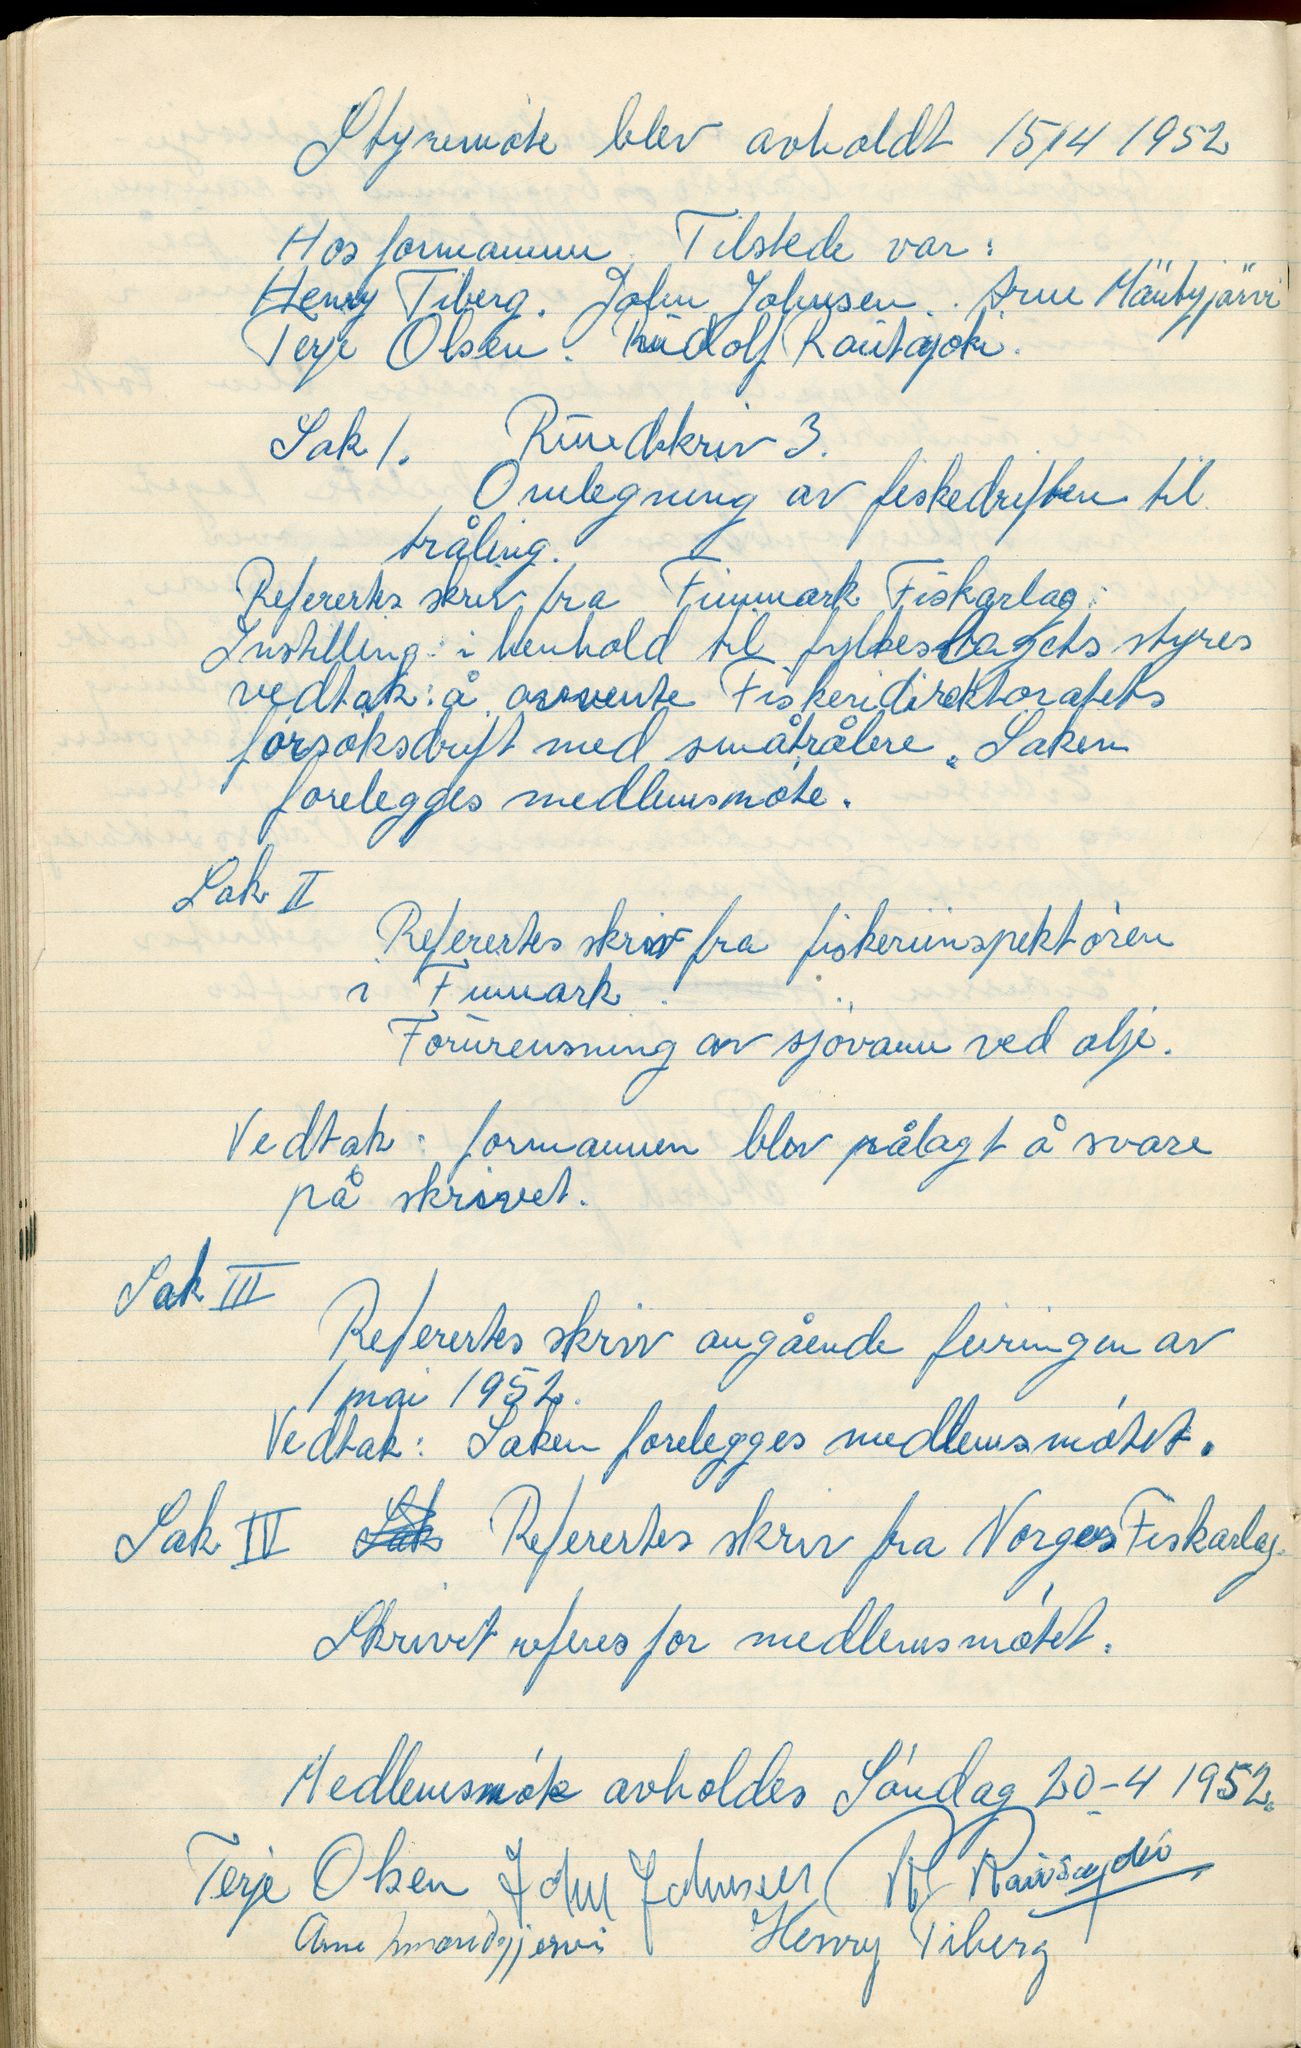 Styremöte blev avholdt 15/4 1952
Hos formannen. Tilstede var:
Henry Tiberg. John Johnsen. Arne Mäntyjärvi
Terje Olsen. Rudolf Rautajoki.
Sak 1. Rundskriv 3.
Omlegning av fiskedriften til
tråling.
Referertes skriv fra Finnmark Fiskarlag.
Instilling: i henhold til fylkeslagets styres
vedtak: å avvente Fiskeridirektoratets
forsöksdrift med småtrålere. Saken
forelegges medlemsmöte.
Sak II
Referertes skriv fra fiskeriinspektören
i Finmark.
Forurensning av sjövann ved olje.
Vedtak: formannen blev pålagt å svare
på skrivet.
Sak III
Referertes skriv angående feiringen av
1 mai 1952.
Vedtak: Saken forelegges medlemsmötet.
Sak IV Sak Referertes skriv fra Norges Fiskarlag.
Skrivet referes for medlemsmötet.
Medlemsmöte avholdes Söndag 20-4 1952.
Terje Olsen John Johnsen R. Rautajoki
Arne Henry Tiberg